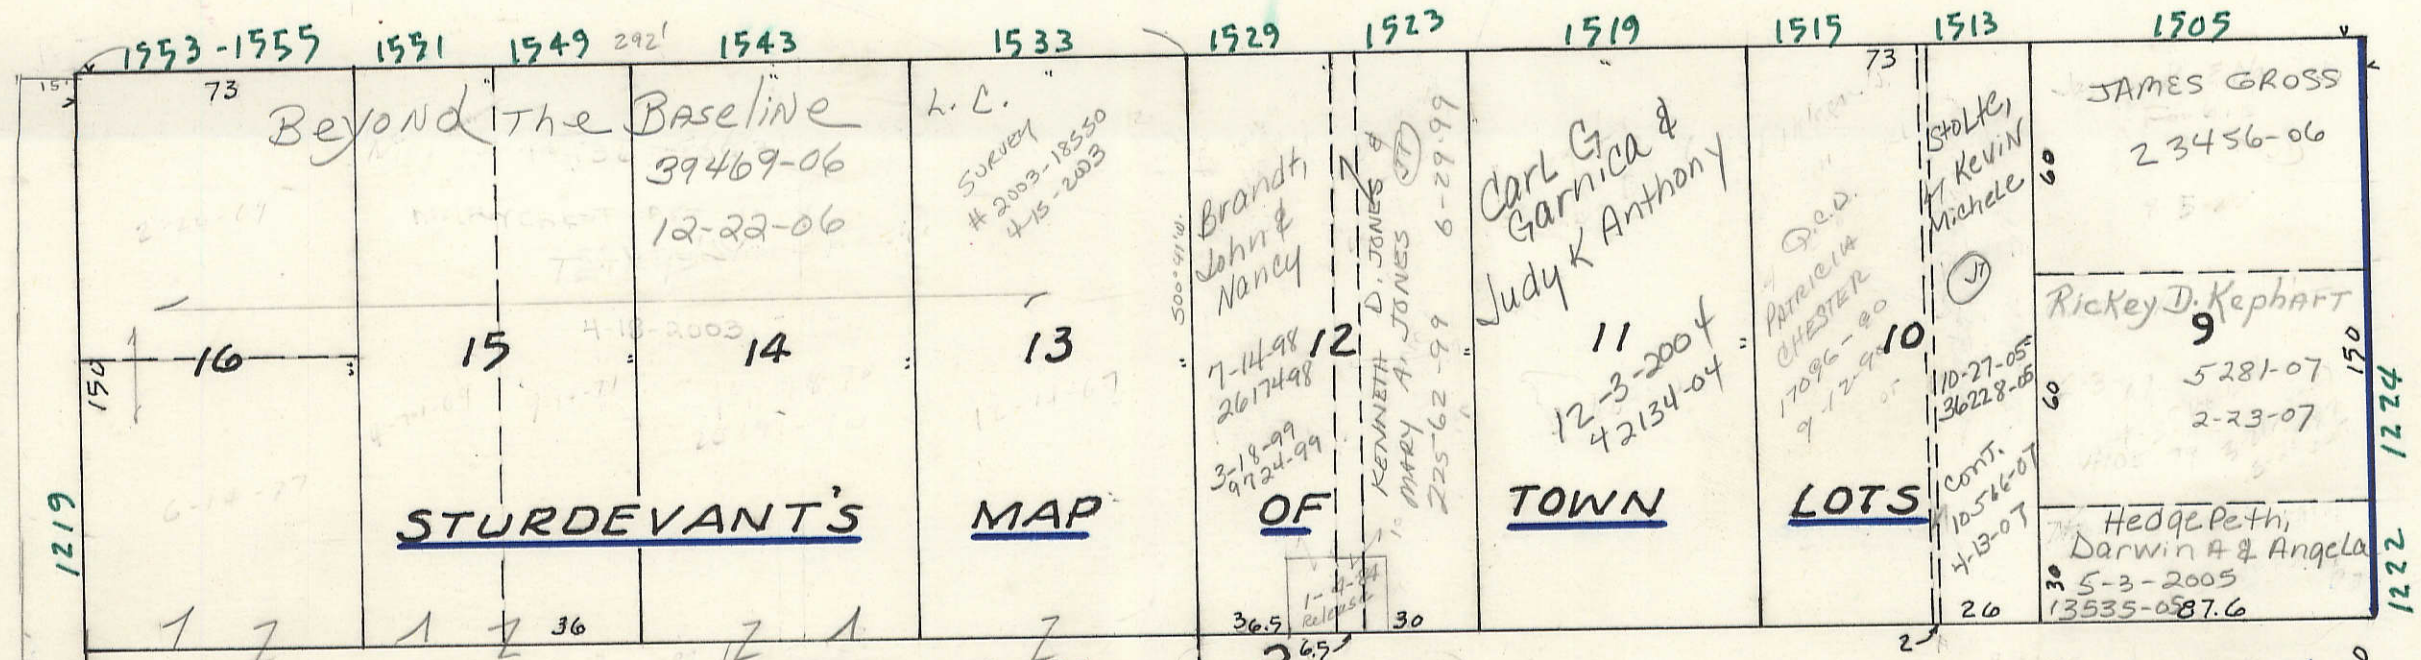 1553-1555 1551 1549 292' 1543 1533 1529 1523 1519 1515 1513 1505
15'
73
Beyond The Baseline
39469-06
12-22-06
4-18-2003
L.C.
SURVEY
# 2003-18550
4-15-2003
S00°41'W.
Brandt,
John &
Nancy
7-14-98
2617498
3-18-99
9724-99
KENNETH D. JONES &
MARY A. JONES (JT)
22562-99 6-29-99
Carl G
Garnica &
Judy K Anthony
12-3-2004
42134-04
73
Q.C.D.
PATRICIA
CHESTER
17096-90
9-12-90
Stolte,
Kevin
Michele
JT
10-27-05
36228-05
Cont.
10566-07
4-13-07
JAMES GROSS
23456-06
60
Rickey D. Kephart
9
5281-07
2-23-07
60
150
Hedgepeth,
Darwin A & Angela
5-3-2005
30
13535-05 87.6
16 15 14 13 12 11 10
150
STURDEVANT'S MAP OF TOWN LOTS
1219
1224
1222
1 2 1 2 36 2 1 2
36.5
1-4-84
Release
6.5
30
2
26